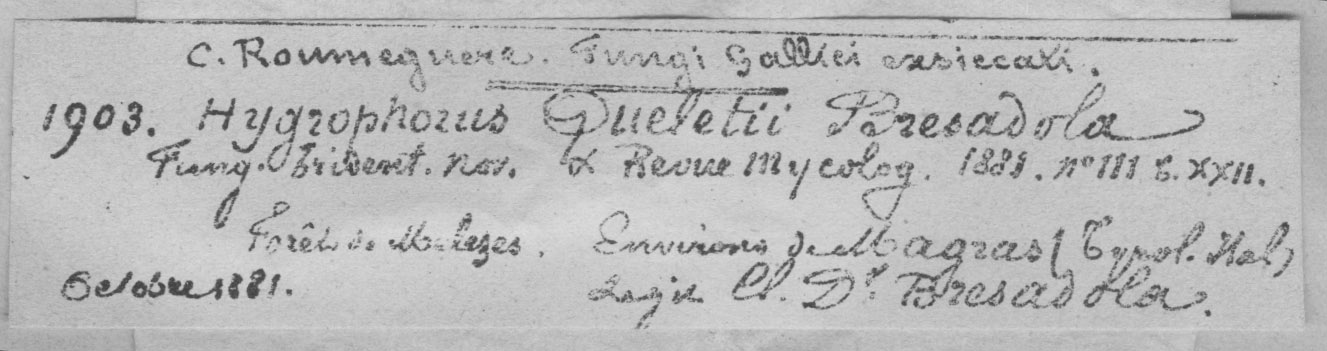 C. Roumeguere. Fungi Gallici exsiccati.
1903. Hygrophorus Queletii Bresadola
Fung. Trident. nov. & Revue Mycolog. 1881. nº III t. XXII.
Forêt de Melezes. Environs de Magras (Tyrol. Ital)
Octobre 1881. Legit Cl. Dr. Bresadola.